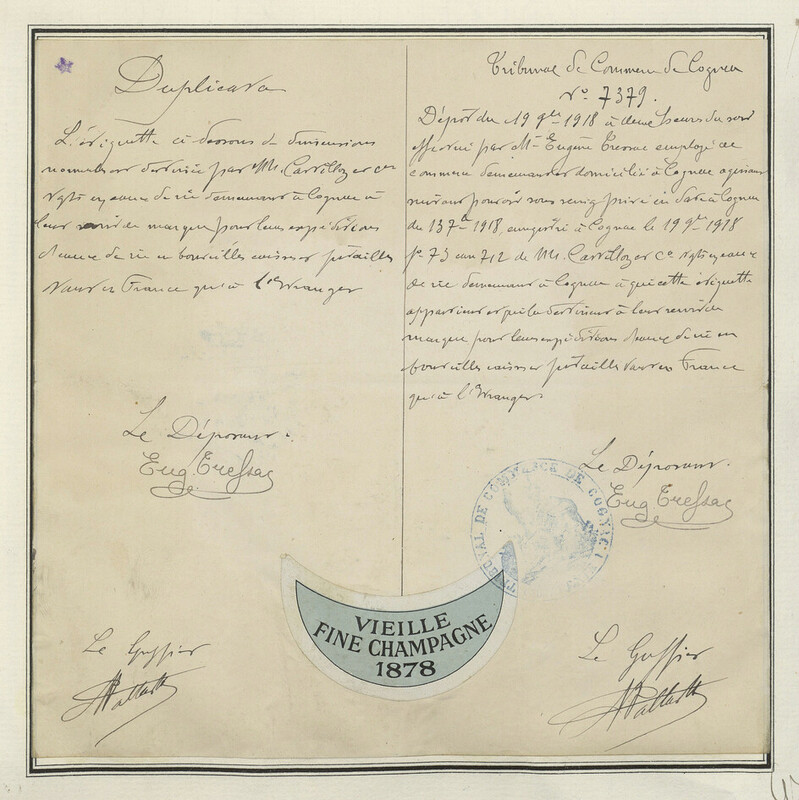 Duplicata
L'étiquette ci dessous de dimensions
normales est destinée par MM. Castillon et Cie
Ngts en eaux de vie demeurant à Cognac à
leur servir de marque pour leurs expéditions
d'eaux de vie en bouteilles caisses futailles
tant en France qu'à l'Etranger
Le Déposant.
Eug. Tressac
Le Greffier
Tribunal de Commerce de Cognac
No 7379.
Dépôt du 19 9bre 1918 à deux heures du soir
effectué par Mr Eugène Tressac employé de
commerce demeurant et domicilié à Cognac agissant
suivant pouvoir sous seing privé en date à Cognac
du 1918, enregistré à Cognac le 19 9bre 1918
fo 73 case 712 de MM. Castillon et Cie Ngts en eaux
de vie demeurant à Cognac à qui cette étiquette
appartient et qu'ils destinent à leur servir de
marque pour leurs expéditions d'eaux de vie en
bouteilles caisses futailles tant en France
qu'à l'Etranger.
Le Déposant.
Eug Tressac
TRIBUNAL DE COMMERCE DE COGNAC
Le Greffier
VIEILLE
FINE CHAMPAGNE
1878